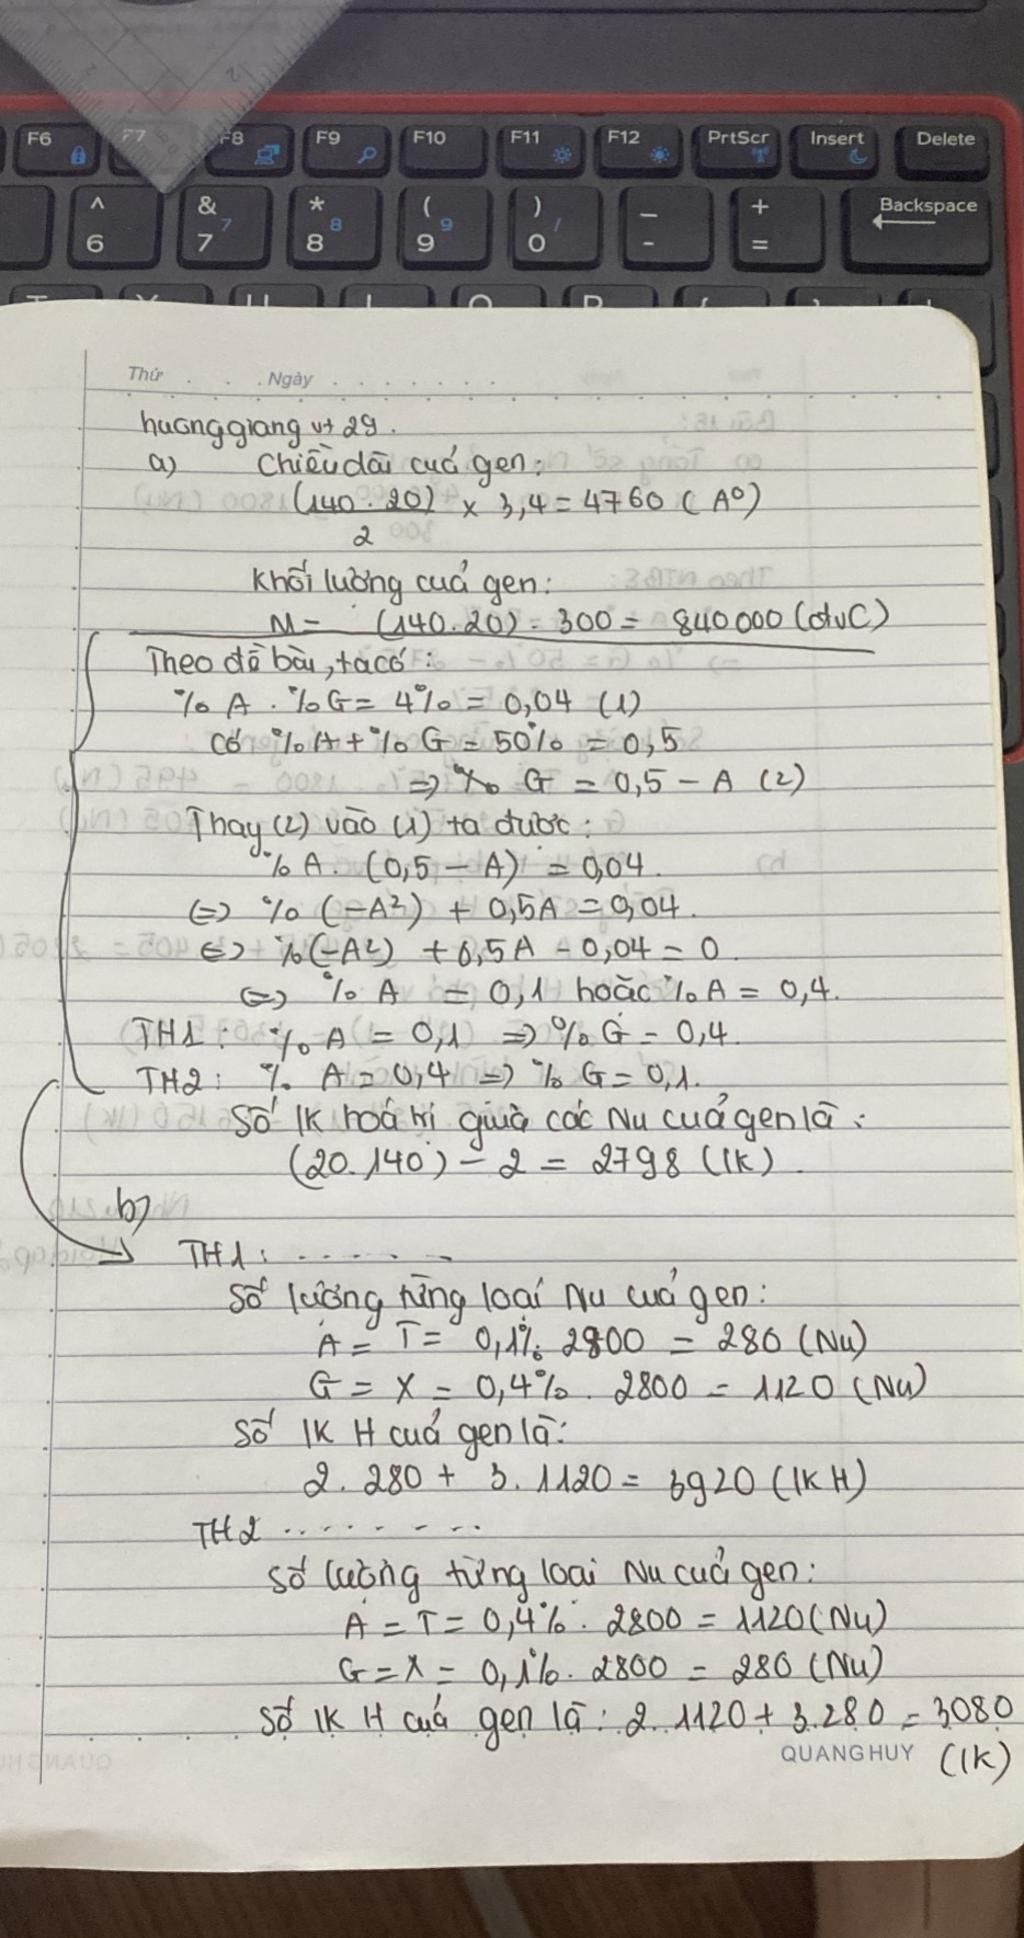 F6 F7 F8 F9 F10 F11 F12 PrtScr Insert Delete
^ & * ( ) — + Backspace
6 7 7 8 8 9 9 0 / - =
Thứ . . . Ngày . . . . . . .
huonggiang vt 29.
a) Chiều dài của gen:
(140.20)/2 x 3,4 = 4760 (A⁰)
Khối lượng của gen:
M = (140.20) . 300 = 840000 (đvC)
Theo đề bài, ta có:
% A . % G = 4% = 0,04 (1)
Có % A + % G = 50% = 0,5
=> % G = 0,5 - A (2)
Thay (2) vào (1) ta được:
% A . (0,5 - A) = 0,04.
<=> % (-A²) + 0,5A = 0,04.
<=> % (-A²) + 0,5A - 0,04 = 0.
<=> % A = 0,1 hoặc % A = 0,4.
TH1: % A = 0,1 => % G = 0,4.
TH2: % A = 0,4 => % G = 0,1.
Số lK hoá trị giữa các Nu của gen là:
(20.140) - 2 = 2798 (lK).
b)
TH1: . . . . . .
Số lượng từng loại Nu của gen:
A = T = 0,1% . 2800 = 280 (Nu)
G = X = 0,4% . 2800 = 1120 (Nu)
Số lK H của gen là:
2. 280 + 3. 1120 = 3920 (lK H)
TH2 . . . . . . . .
Số lượng từng loại Nu của gen:
A = T = 0,4% . 2800 = 1120 (Nu)
G = X = 0,1% . 2800 = 280 (Nu)
Số lK H của gen là: 2. 1120 + 3.280 = 3080
(lK)
QUANG HUY